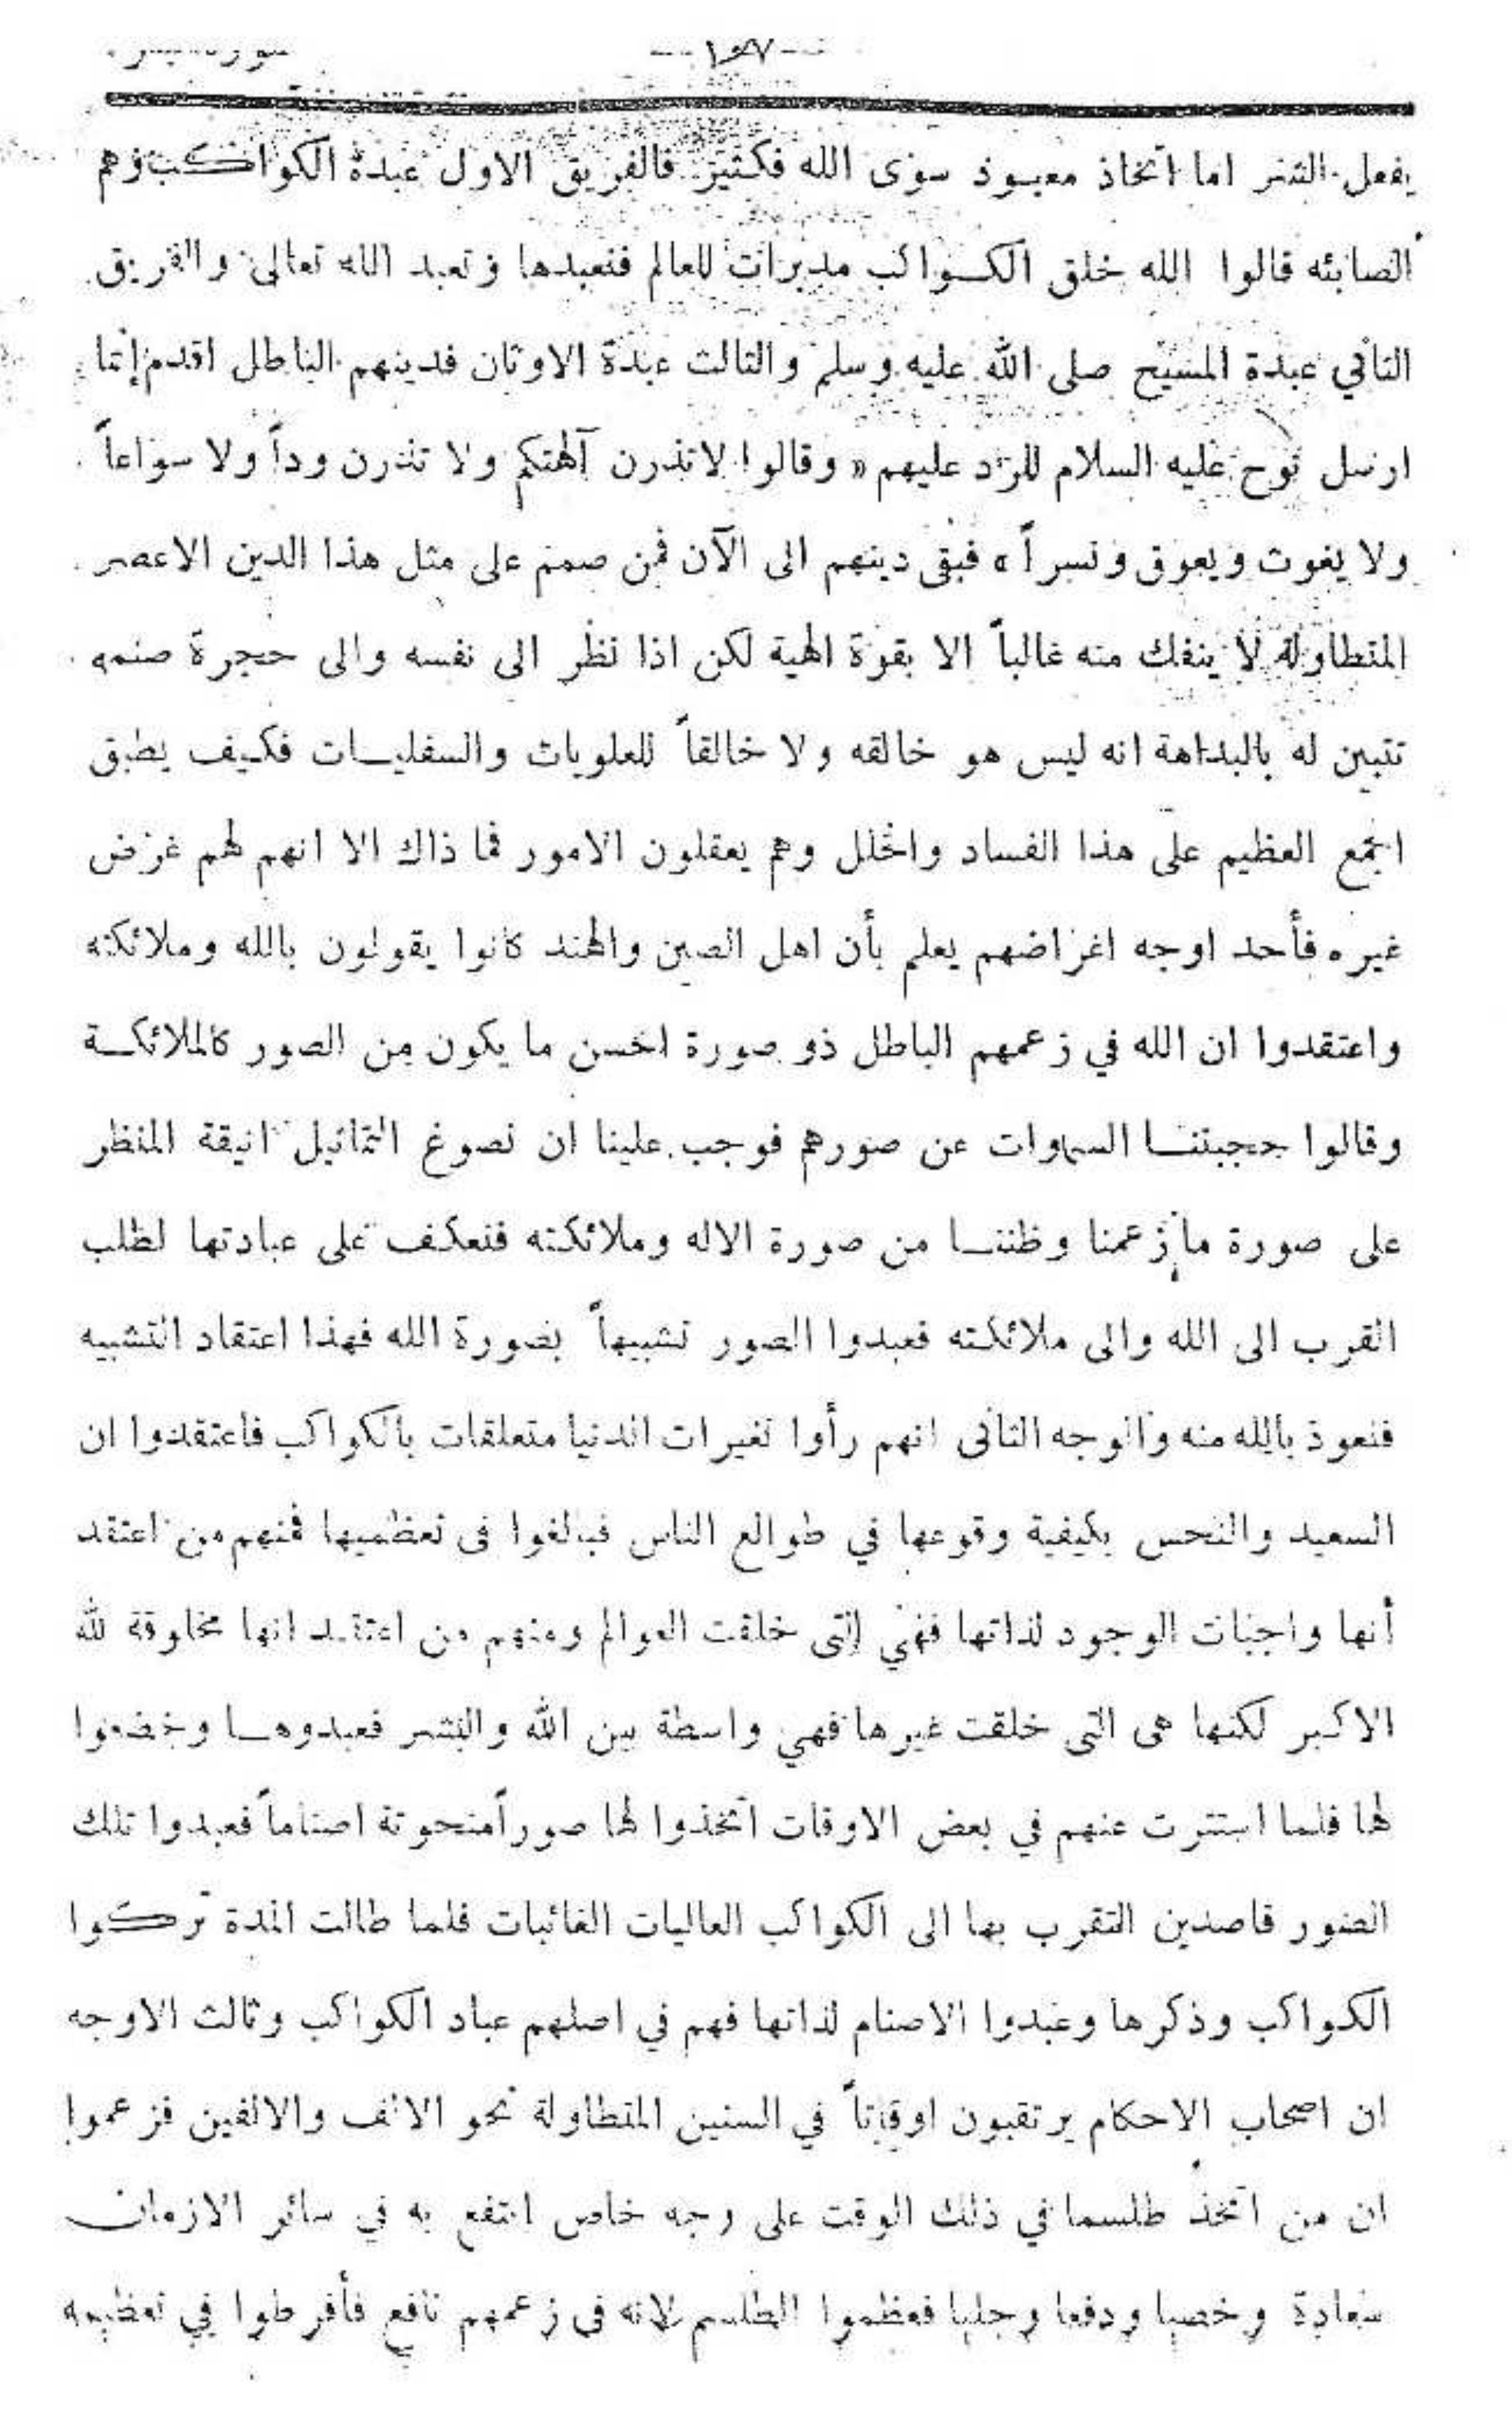 سورة البقرة -١٥٧-
يفعل الشر اما اتخاذ معبود سوى الله فكثير فالفريق الاول عبدة الكواكب وهم
الصابئه قالوا الله خلق الكواكب مدبرات للعالم فنعبدها وتعبد الله تعالى والفريق
الثاني عبدة المسيح صلى الله عليه وسلم والثالث عبدة الاوثان فدينهم الباطل اقدم إنما
ارسل نوح عليه السلام للرد عليهم « وقالوا لا تذرن آلهتكم ولا تذرن وداً ولا سواعاً
ولا يغوث ويعوق ونسراً » فبقى دينهم الى الآن فمن صمم على مثل هذا الدين الاعصر
المتطاولة لا ينفك منه غالباً الا بقوة الهية لكن اذا نظر الى نفسه والى حجرة صنمه
تتبين له بالبداهة انه ليس هو خالقه ولا خالقاً للعلويات والسفليات فكيف يطبق
الجمع العظيم على هذا الفساد والخلل وهم يعقلون الامور فما ذاك الا انهم لهم غرض
غيره فأحد اوجه اغراضهم يعلم بأن اهل الصين والهند كانوا يقولون بالله وملائكته
واعتقدوا ان الله في زعمهم الباطل ذو صورة احسن ما يكون من الصور كالملائكة
وقالوا حجبتنا السموات عن صورهم فوجب علينا ان نصوغ التماثيل انيقة المنظر
على صورة ما زعمنا وظننا من صورة الاله وملائكته فنعكف على عبادتها لطلب
القرب الى الله والى ملائكته فعبدوا الصور تشبيهاً بصورة الله فهذا اعتقاد التشبيه
فنعوذ بالله منه والوجه الثانى انهم رأوا تغيرات الدنيا متعلقات بالكواكب فاعتقدوا ان
السعيد والنحس بكيفية وقوعها في طوالع الناس فبالغوا فى تعظميها فمنهم من اعتقد
أنها واجبات الوجود لذاتها فهي التى خلقت العوالم ومنهم من اعتقد انها مخلوقة لله
الاكبر لكنها هى التى خلقت غيرها فهي واسطة بين الله والبشر فعبدوها وخضعوا
لها فلما استترت عنهم في بعض الاوقات اتخذوا لها صوراً منحوتة اصناماً فعبدوا تلك
الصور قاصدين التقرب بها الى الكواكب العاليات الغائبات فلما طالت المدة تركوا
الكواكب وذكرها وعبدوا الاصنام لذاتها فهم في اصلهم عباد الكواكب وثالث الاوجه
ان اصحاب الاحكام يرتقبون اوقاتاً في السنين المتطاولة نحو الالف والالفين فزعموا
ان من اتخذ طلسما في ذلك الوقت على وجه خاص انتفع به في سائر الازمان
سعادة وخصبا ودفعا وجلبا فعظموا الطلسم لانه فى زعمهم نافع فأفرطوا في تعظيمه